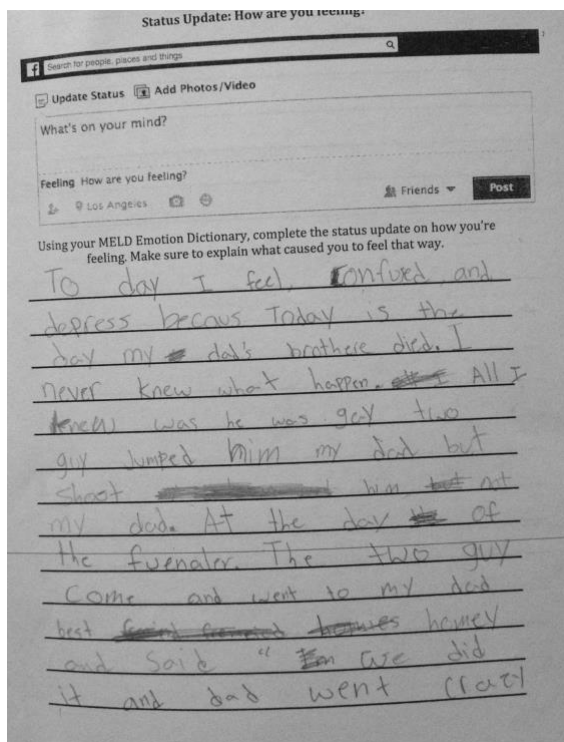 Status Update: How are you feeling?
f Search for people, places and things
Update Status Add Photos/Video
What's on your mind?
Feeling How are you feeling?
Los Angeles Friends Post
Using your MELD Emotion Dictionary, complete the status update on how you're
feeling. Make sure to explain what caused you to feel that way.
To day I feel, confused and
depress becaus Today is the
day my dad's brothere died. I
never knew what happen. All I
knew was he was gay two
guy Jumped him my dad but
shoot him not
my dad. At the day of
the fuenaler. The two guy
Come and went to my dad
best homey
and Said " we did
it and dad went crazy